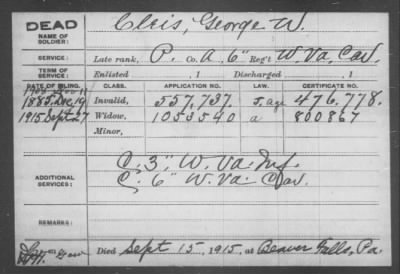 DEAD
NAME OF SOLDIER: Cleis, George W.
SERVICE: Late rank, P. Co. A, 6" Reg't W. Va. Cav.
TERM OF SERVICE: Enlisted , 1 Discharged , 1
DATE OF FILING. CLASS. APPLICATION NO. CERTIFICATE NO.
1885. Dec. 19 Invalid, 557,737. 476.778.
1915 Sept 27 Widow, 1053540 a 800867
Minor,
ADDITIONAL SERVICES: C. 3" W. Va. Inf.
C. 6" W. Va. Cav.
REMARKS:
Died Sept 15, 1915, at Beaver Falls, Pa.